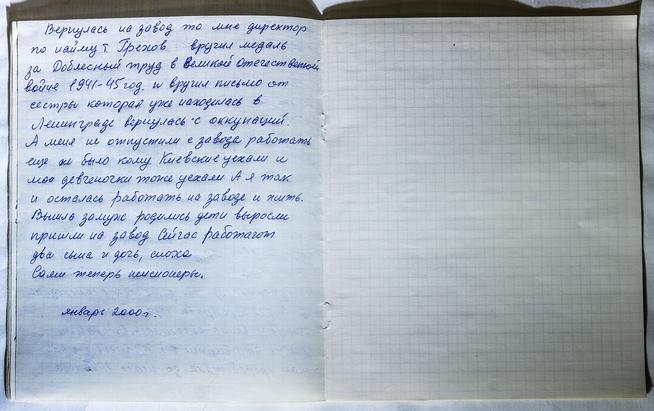 Вернулась на завод то мне директор
по найму т Грехов вручил медаль
за Доблесный труд в Великой Отечественной
войне 1941-45 год. и вручил письмо от
сестры которая уже находилась в
Ленинграде вернулась с оккупаций.
А меня не отпустили с завода работать
еще не было кому Киевские уехали и
мои девченочки тоже уехали А я так
и осталась работать на заводе и жить.
Вышла замуж родились дети выросли
пришли на завод Сейчас работают
два сына и дочь, сноха
Сами теперь пенсионеры.
январь 2000 г.